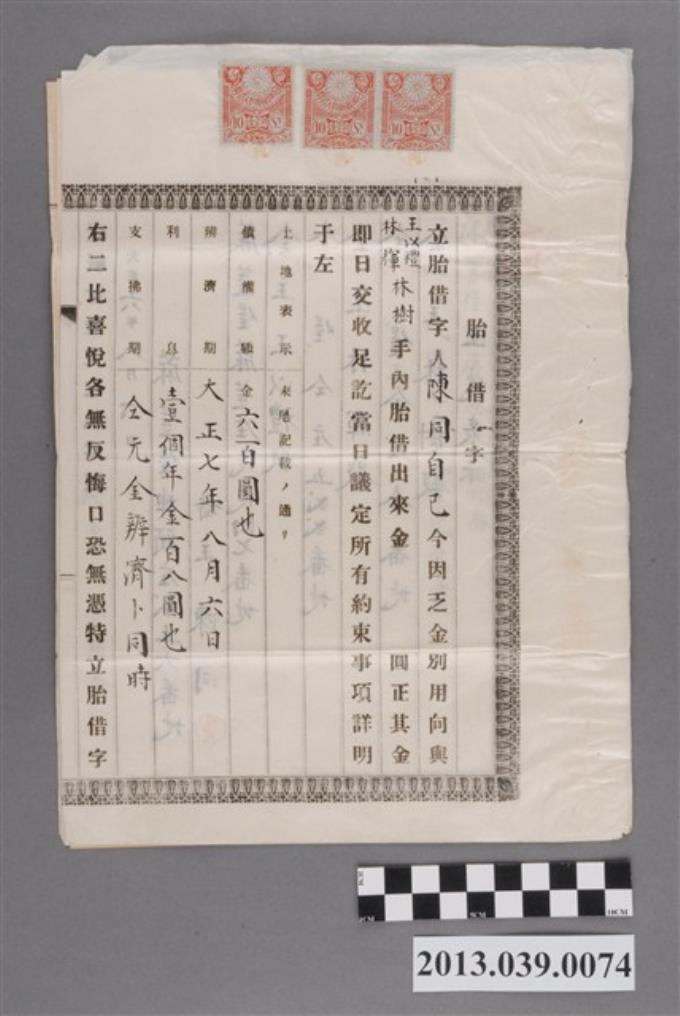 胎借字
立胎借字人陳同自己今因乏金別用向與
王以禮
林樹
林輝
手內胎借出來金 圓正其金
即日交收足訖當日議定所有約束事項詳明
于左
土地表示 末尾記載ノ通リ
債權額金 六百圓也
辨濟期 大正七年八月六日
利息 壹個年金百八圓也
支拂期 仝元金辨濟卜同時
右二比喜悅各無反悔口恐無憑特立胎借字
10
10
10
5CM
10CM
2013.039.0074